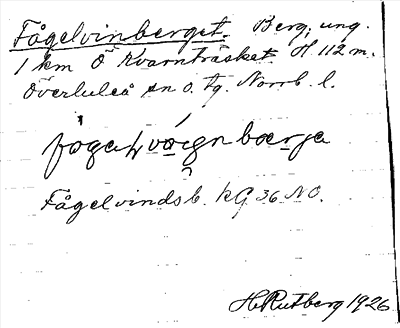 Fågelvinberget. Berg, ung.
1 km Ö Kvarnträsket. H 112 m.
Överluleå sn o. tg. Norrb. l.
Fågelvindsb. kG 36 NO.
H. Rutberg 1926